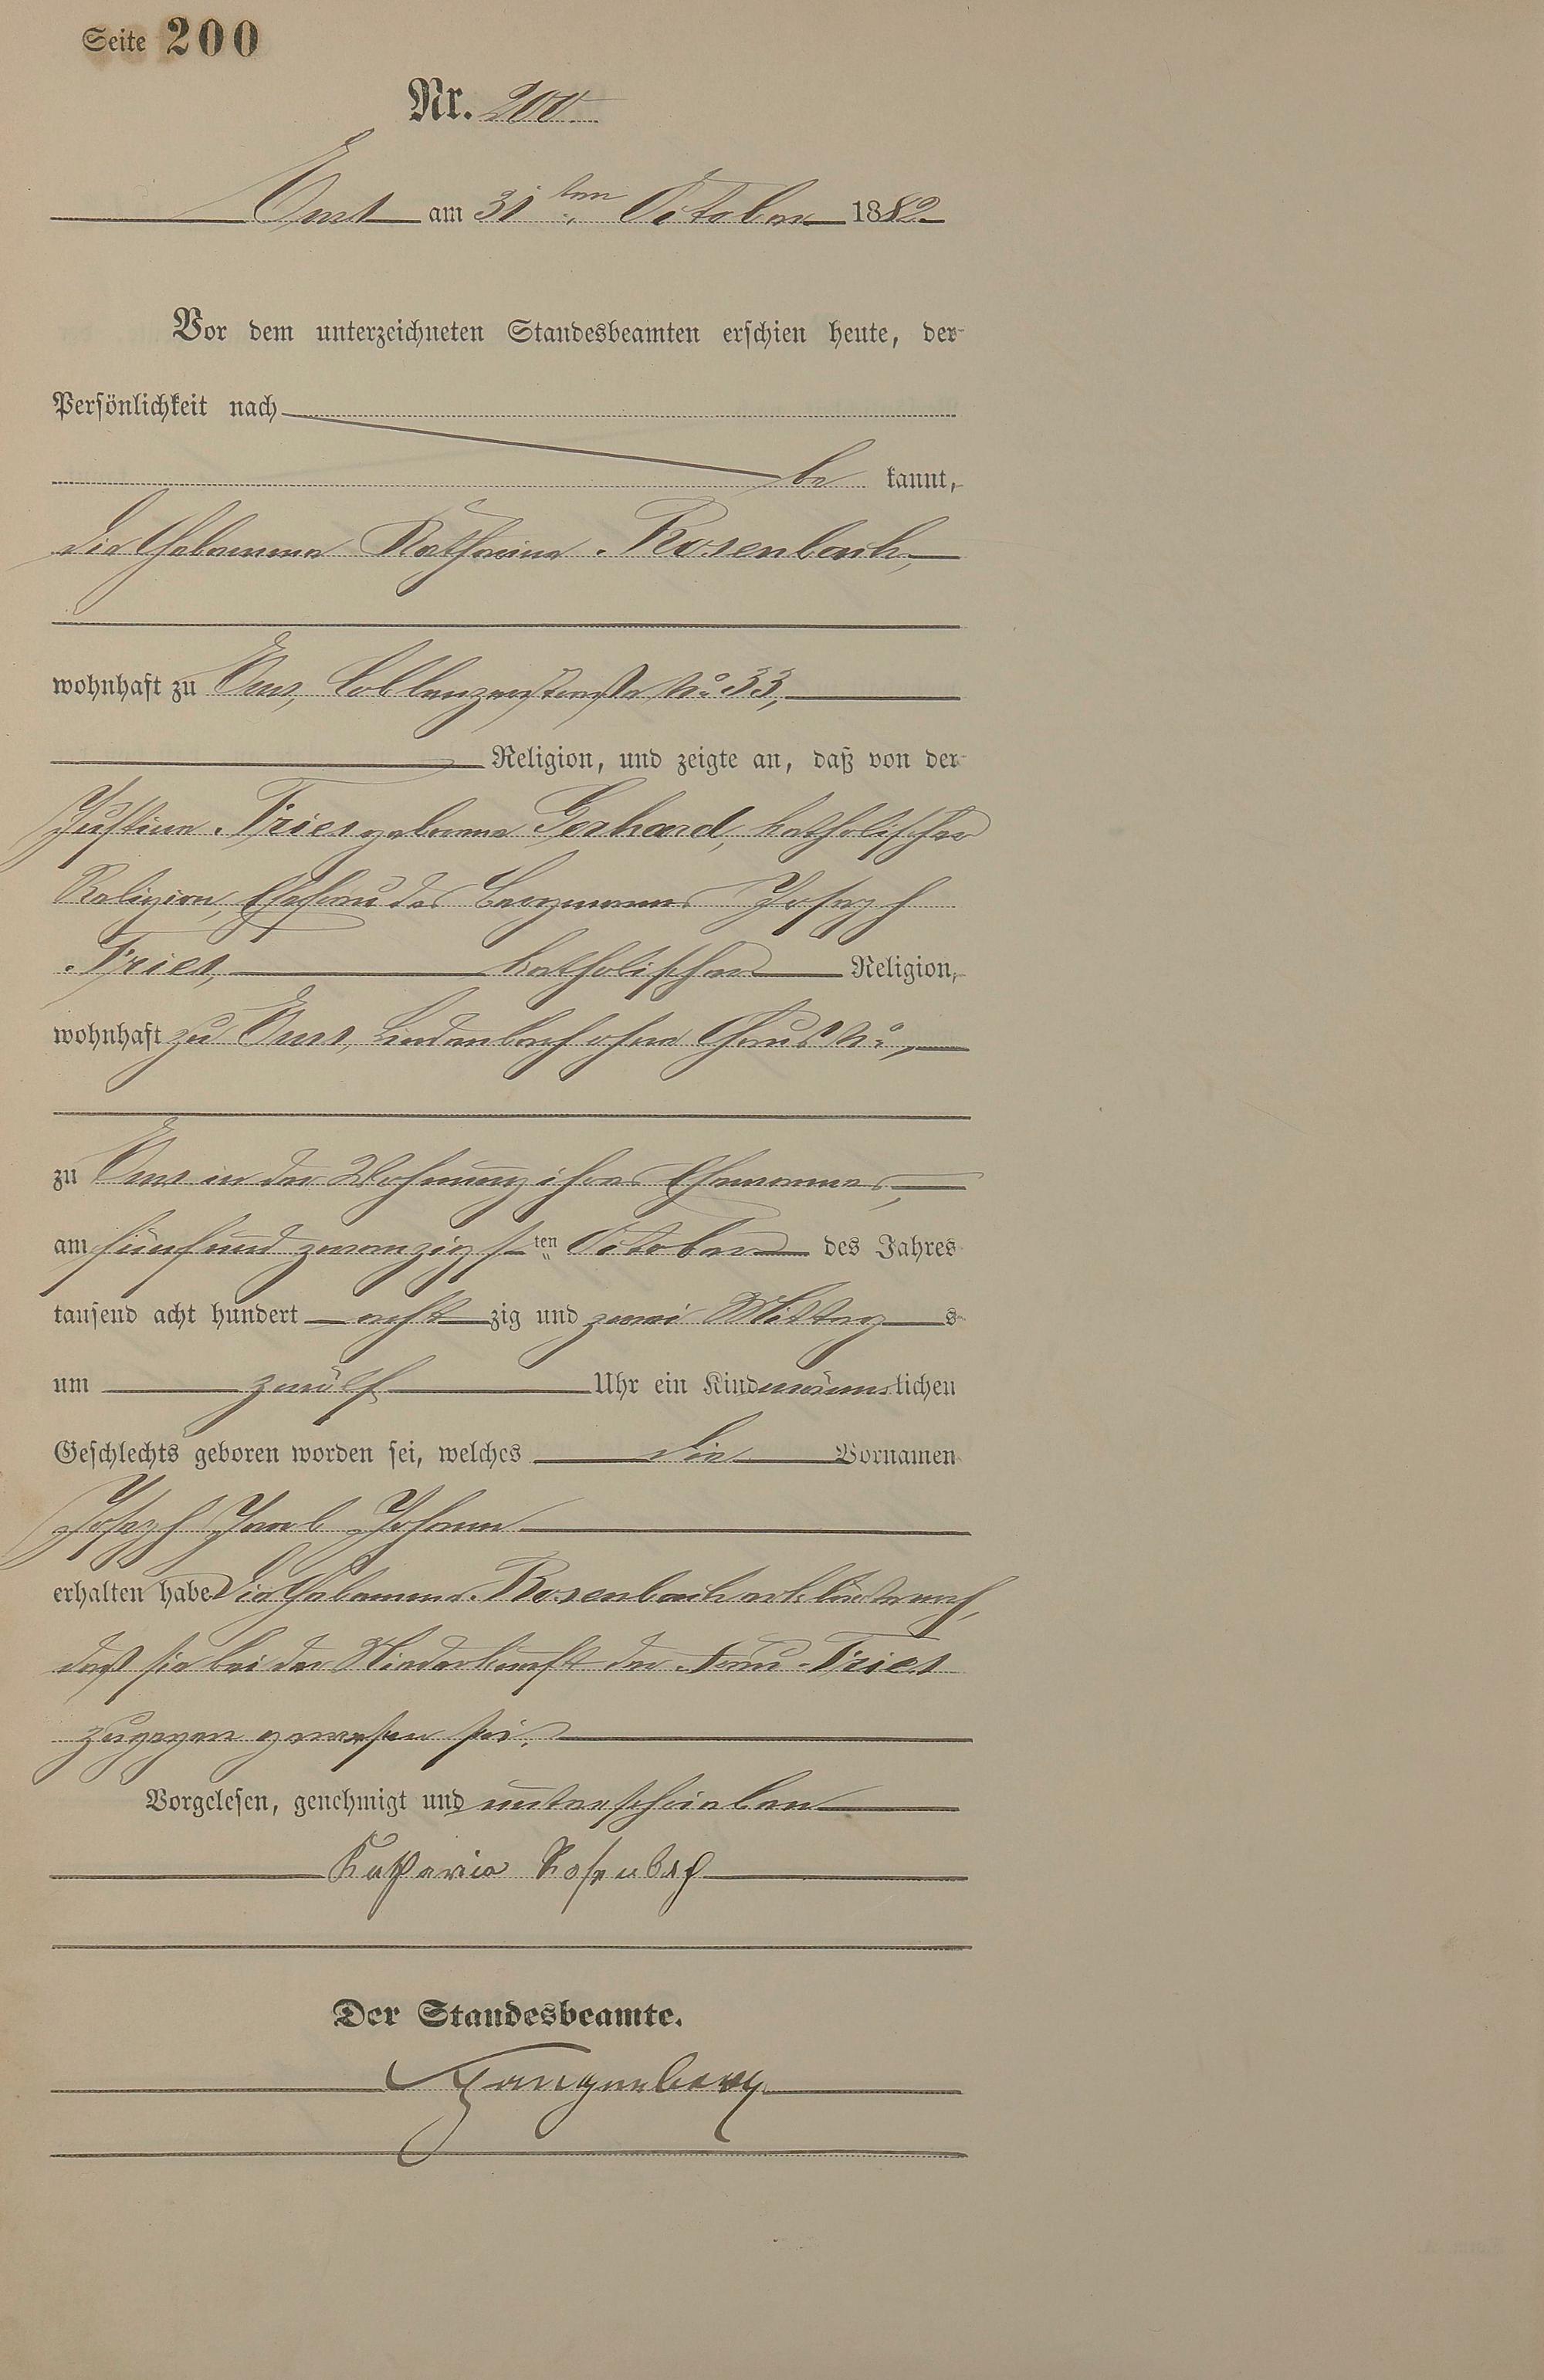 Seite 200
Nr. 200
Ems am 31ten October 1882
Vor dem unterzeichneten Standesbeamten erschien heute, der
Persönlichkeit nach
be kannt,
die Hebamme Katharina Rosenbach,
wohnhaft zu Ems, Coblenzerstraße No 33,
Religion, und zeigte an, daß von der
Justina Fries geborene Gerhard, katholischer
Religion, Ehefrau des Bergmanns Joseph
Fries, katholischer Religion,
wohnhaft zu Ems, Lindenbach ohne Haus No,
zu Ems in der Wohnung ihres Ehemannes,
am fünf und zwanzigsten October des Jahres
tausend acht hundert acht zig und zwei Mittags
um zwölf Uhr ein Kind männlichen
Geschlechts geboren worden sei, welches die Vornamen
Joseph Jacob Johann
erhalten habe Die Hebamme Rosenbach erklärte noch,
daß sie bei der Niederkunft der Frau Fries
zugegen gewesen sei.
Vorgelesen, genehmigt und unterschrieben
Katharina Rosenbach
Der Standesbeamte.